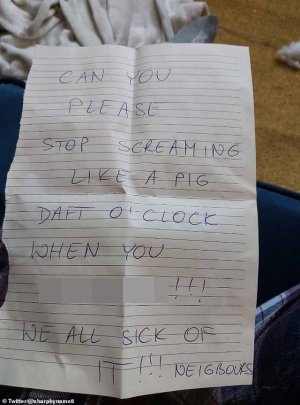 CAN YOU
PLEASE
STOP SCREAMING
LIKE A PIG
DAFT O'CLOCK
WHEN YOU
!!!
WE ALL SICK OF
IT !!! NEIGBOURS
© Twitter@sharpbyname8